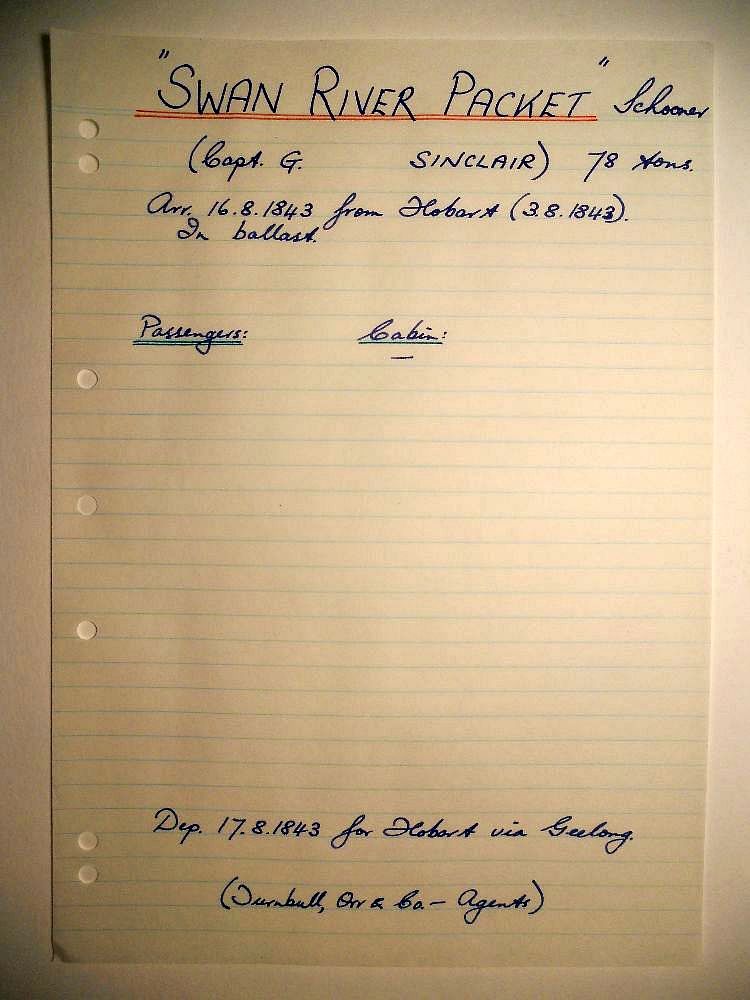 "SWAN RIVER PACKET" Schooner
(Capt. G. SINCLAIR) 78 tons.
Arr. 16.8.1843 from Hobart (3.8.1843).
In ballast.
Passengers: Cabin:
—
Dep. 17.8.1843 for Hobart via Geelong.
(Turnbull, Orr & Co. – Agents)